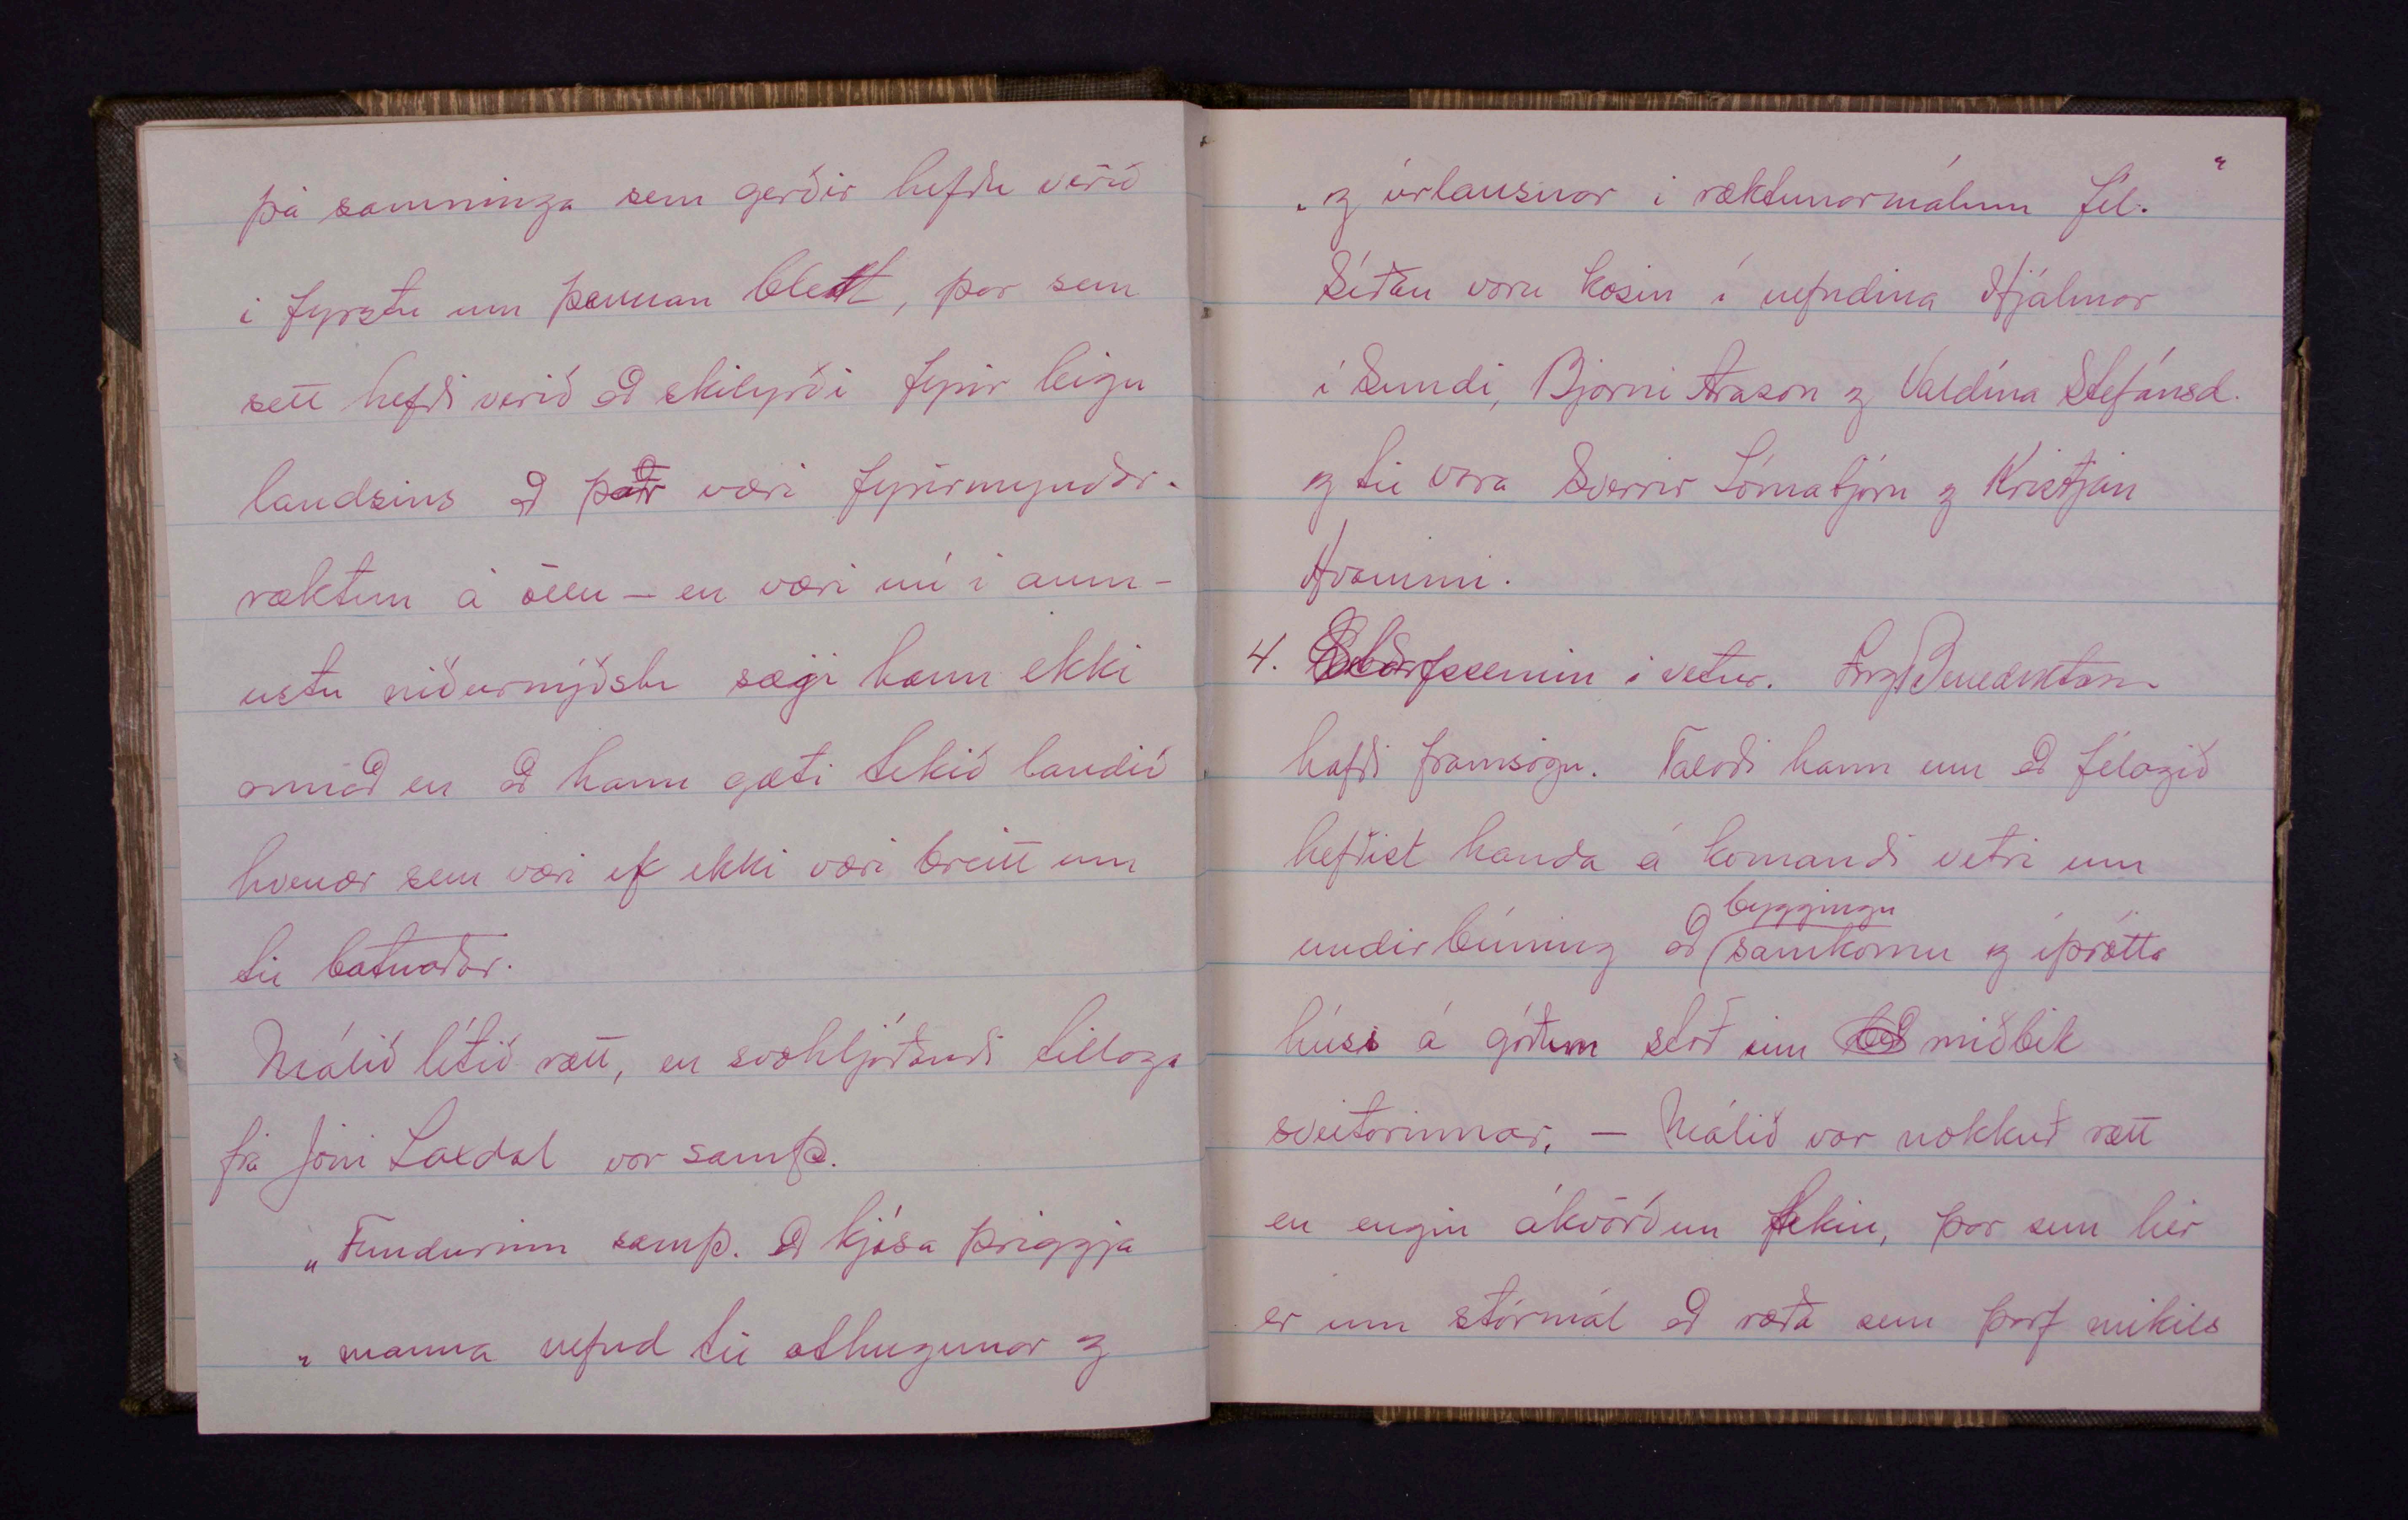 þá samninga sem gerðir hefðu verið
í fyrstu um þennan blett, þar sem
sett hefði verið að skilyrði fyrir leigu
landsins að þar væri fyrirmyndar-
ræktun á öllu - en væri nú í aum-
ustu niðurníðslu sægi hann ekki
annað en að hann gæti tekið landið
hvenær sem væri ef ekki væri breitt um
til batnaðar.
Málið lítið rætt, en svohljóðandi tillaga
frá Jóni Laxdal var samþ.
„Fundurinn samþ. að kjósa þriggja
„manna nefnd til athugunar og
„og úrlausnar í ræktunarmálum fél."
Síðan voru kosin í nefndina Hjálmar
í Sundi, Bjarni Arason og Valdína Stefánsd.
og til vara Sverrir Lómatjörn og Kristján
Hvammi.
4. Starfsemin í vetur. Benediktsson
hafði framsögu. Talaði hann um að félagið
hefðist handa á komandi vetri um
undirbúning að (samkomu og íþrótta
byggingu
húss á góðum stað um miðbik
sveitarinnar. - Málið var nokkuð rætt
en engin ákvörðun tekin, þar sem hér
er um stórmál að ræða sem þarf mikils